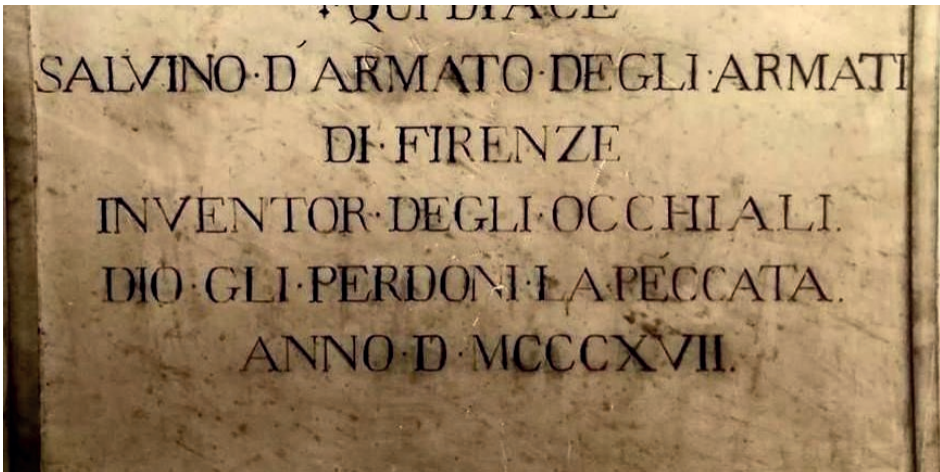 + QUI DIACE
SALVINO·D'ARMATO·DEGLI·ARMATI
DI·FIRENZE
INVENTOR·DEGLI·OCCHIALI.
DIO·GLI·PERDONI·LA·PECCATA.
ANNO·D·MCCCXVII.